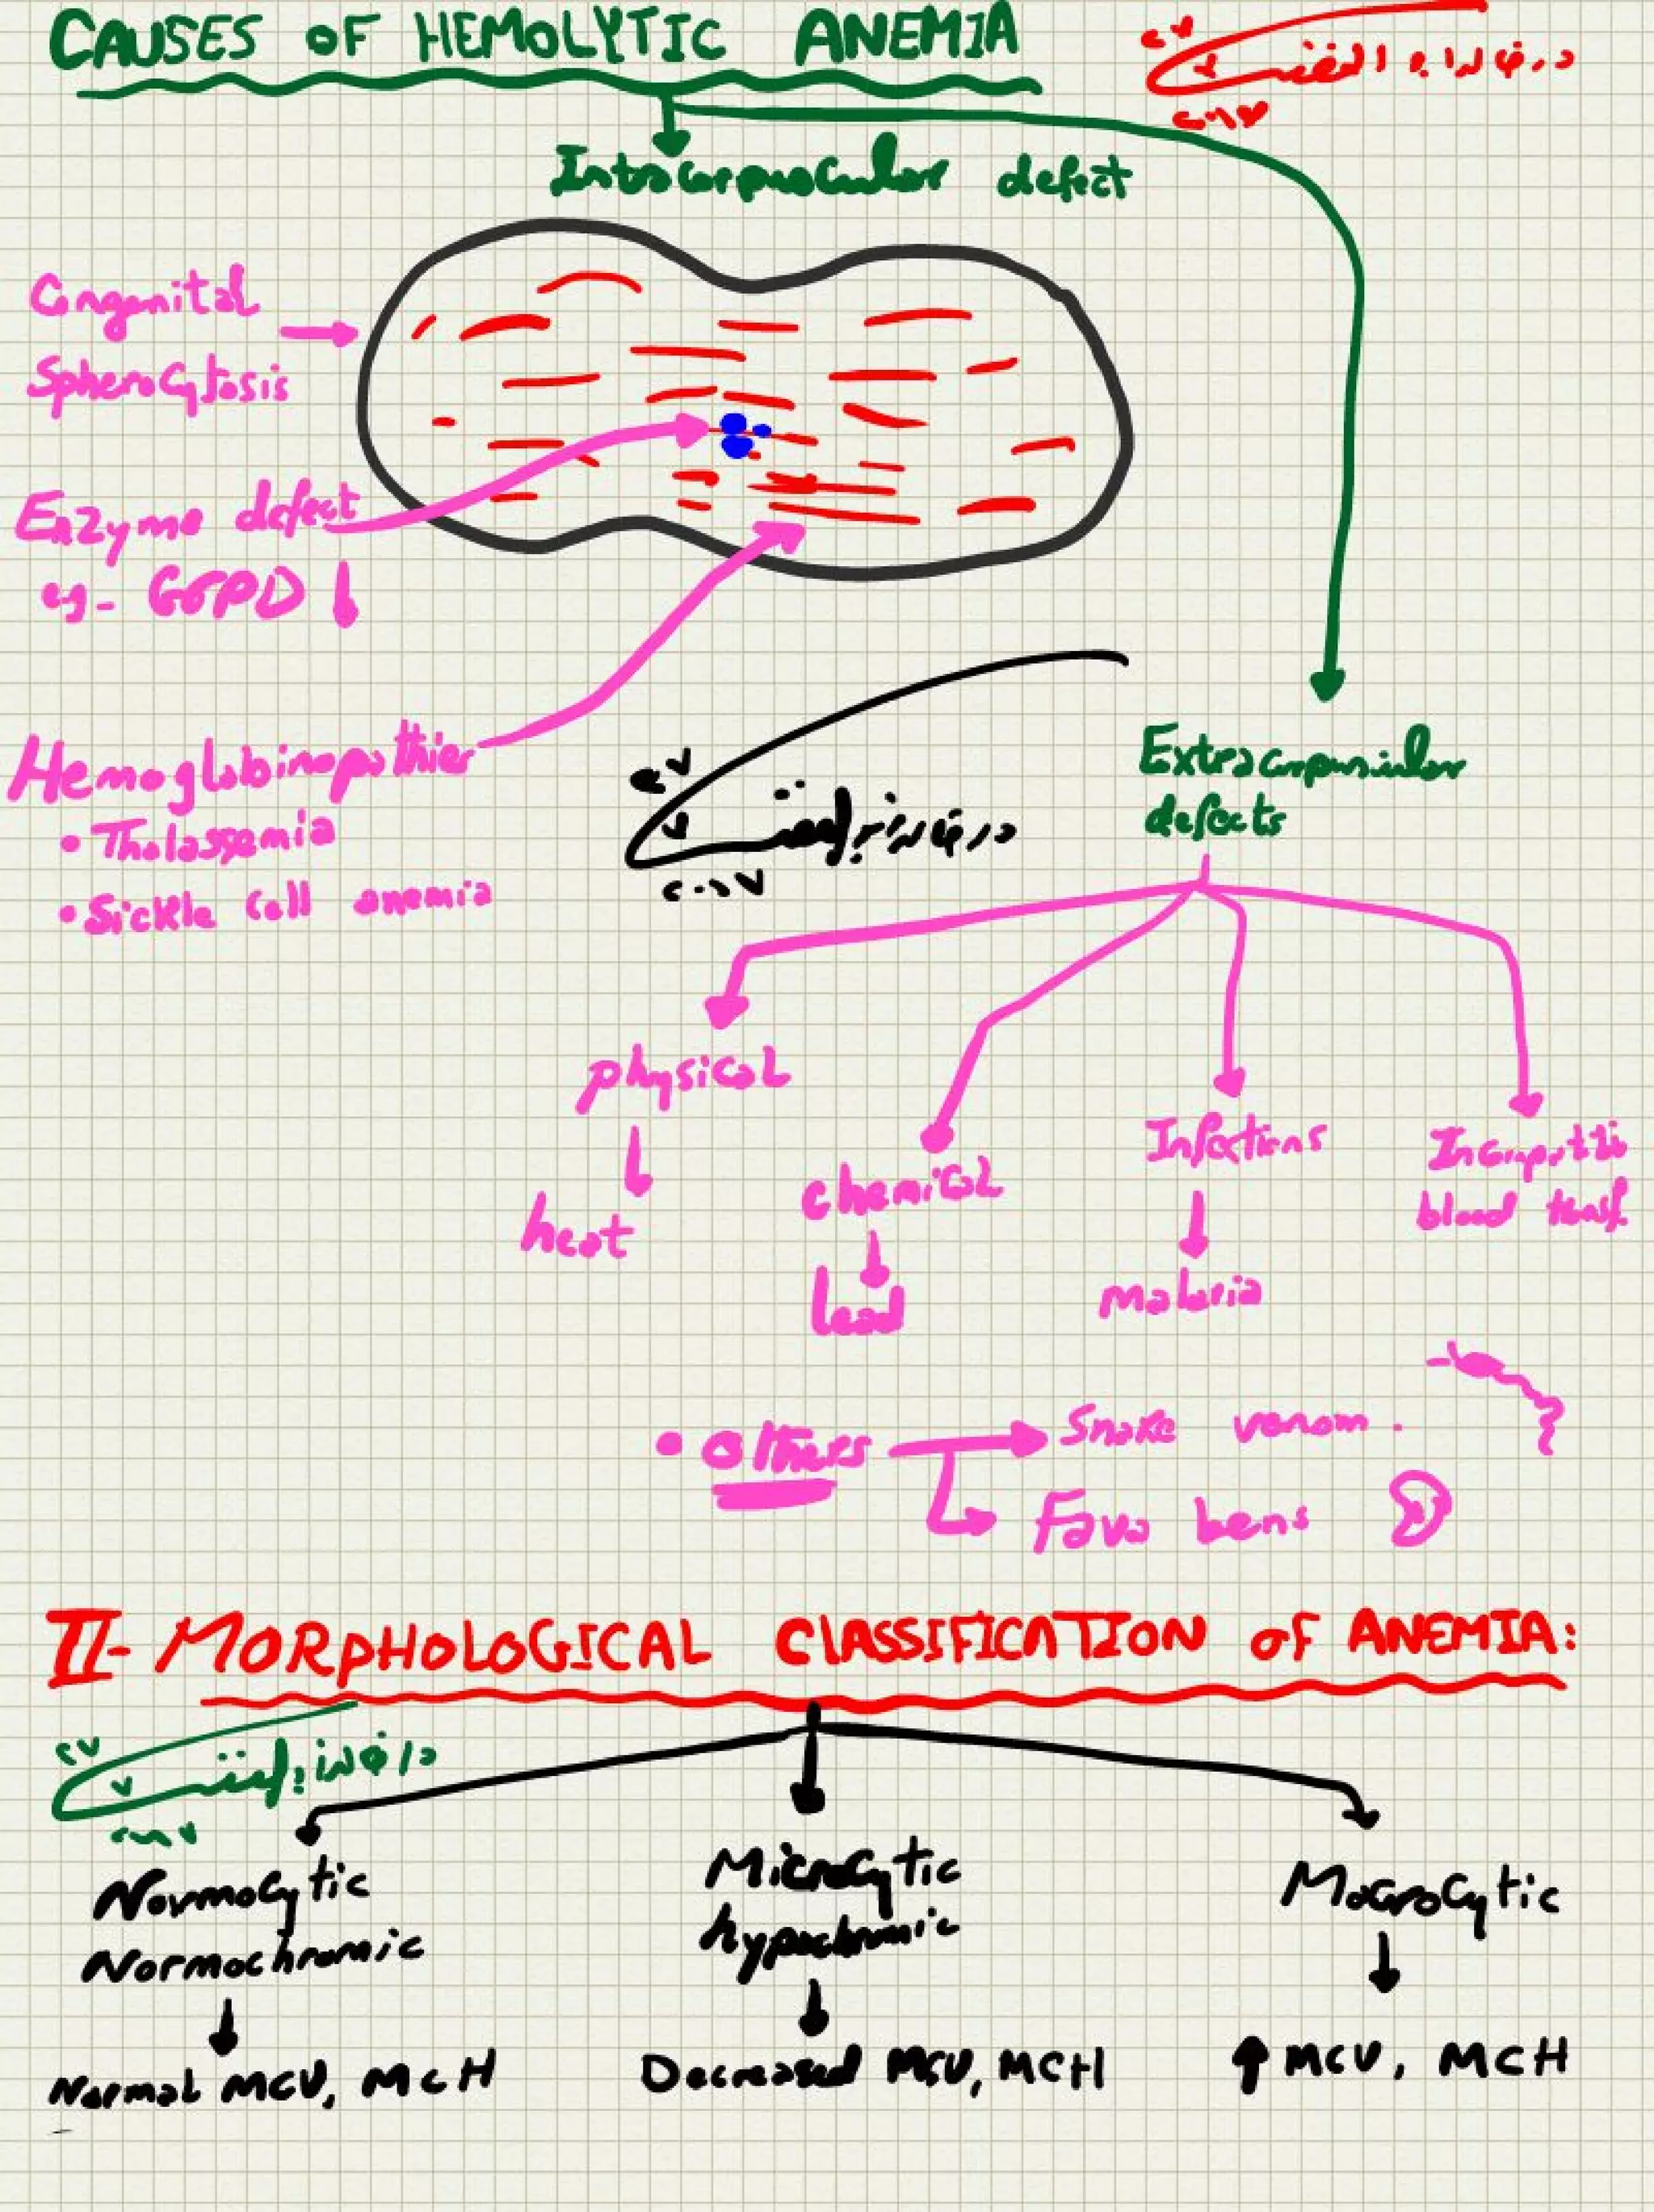 CAUSES OF HEMOLYTIC ANEMIA
Intracorpuscular defect
Congenital
Spherocytosis
Enzyme defect
eg- G6PD ↓
Hemoglobinopathies
• Thalassemia
• Sickle Cell anemia
Extracorpuscular
defects
physical
heat
chemical
lead
Infections
malaria
blood
• Others
Snake venom.
Fava bens
II- MORPHOLOGICAL CLASSIFICATION OF ANEMIA:
Normocytic
Normochromic
Normal MCV, MCH
Microcytic
hypochromic
Decreased MCV, MCH
Macrocytic
↑ MCV, MCH